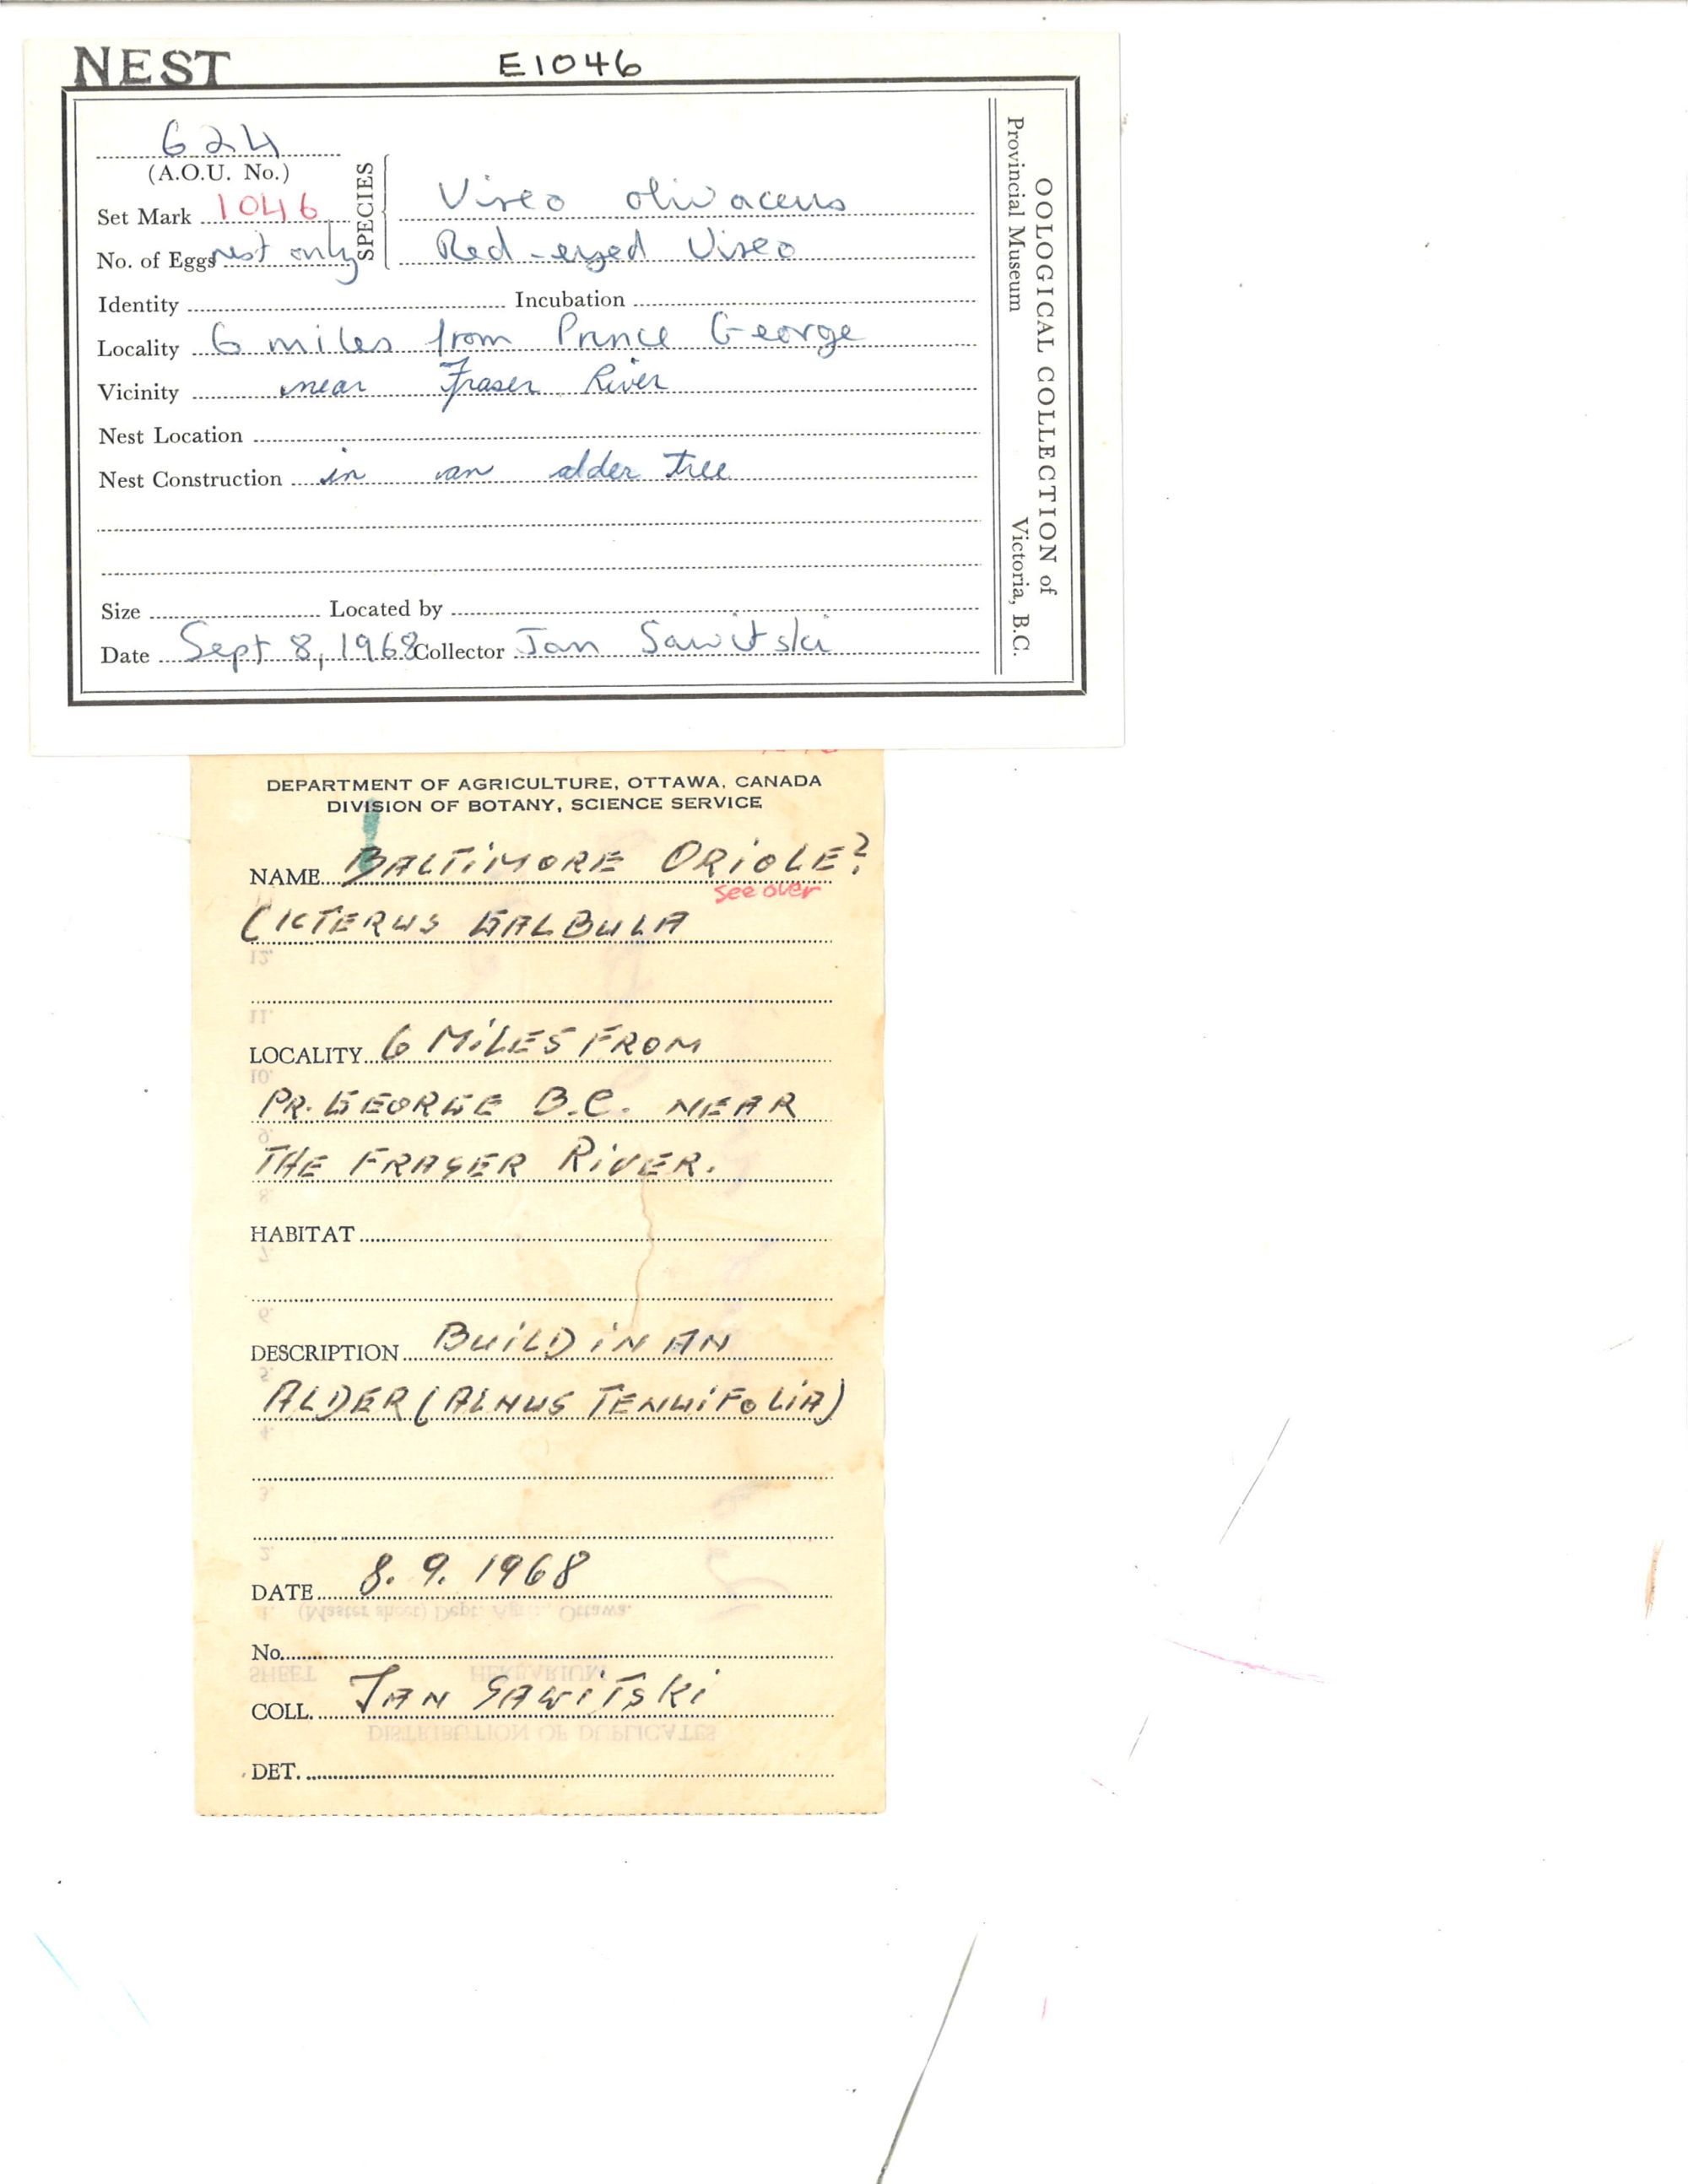 NEST E1046
624
(A.O.U. No.)
Set Mark 1046
No. of Eggs nest only
SPECIES
Vireo olivaceus
Red-eyed Vireo
Identity Incubation
Locality 6 miles from Prince George
Vicinity near Fraser River
Nest Location
Nest Construction in an alder tree
Size Located by
Date Sept 8, 1968 Collector Jan Sawitski
OOLOGICAL COLLECTION of
Provincial Museum Victoria, B.C.
DEPARTMENT OF AGRICULTURE, OTTAWA, CANADA
DIVISION OF BOTANY, SCIENCE SERVICE
NAME BALTIMORE ORIOLE?
see over
(ICTERUS GALBULA
LOCALITY 6 MILES FROM
PR. GEORGE B.C. NEAR
THE FRASER RIVER.
HABITAT
DESCRIPTION BUILD IN AN
ALDER (ALNUS TENUIFOLIA)
DATE 8. 9. 1968
No.
COLL. JAN SAWITSKI
DET.